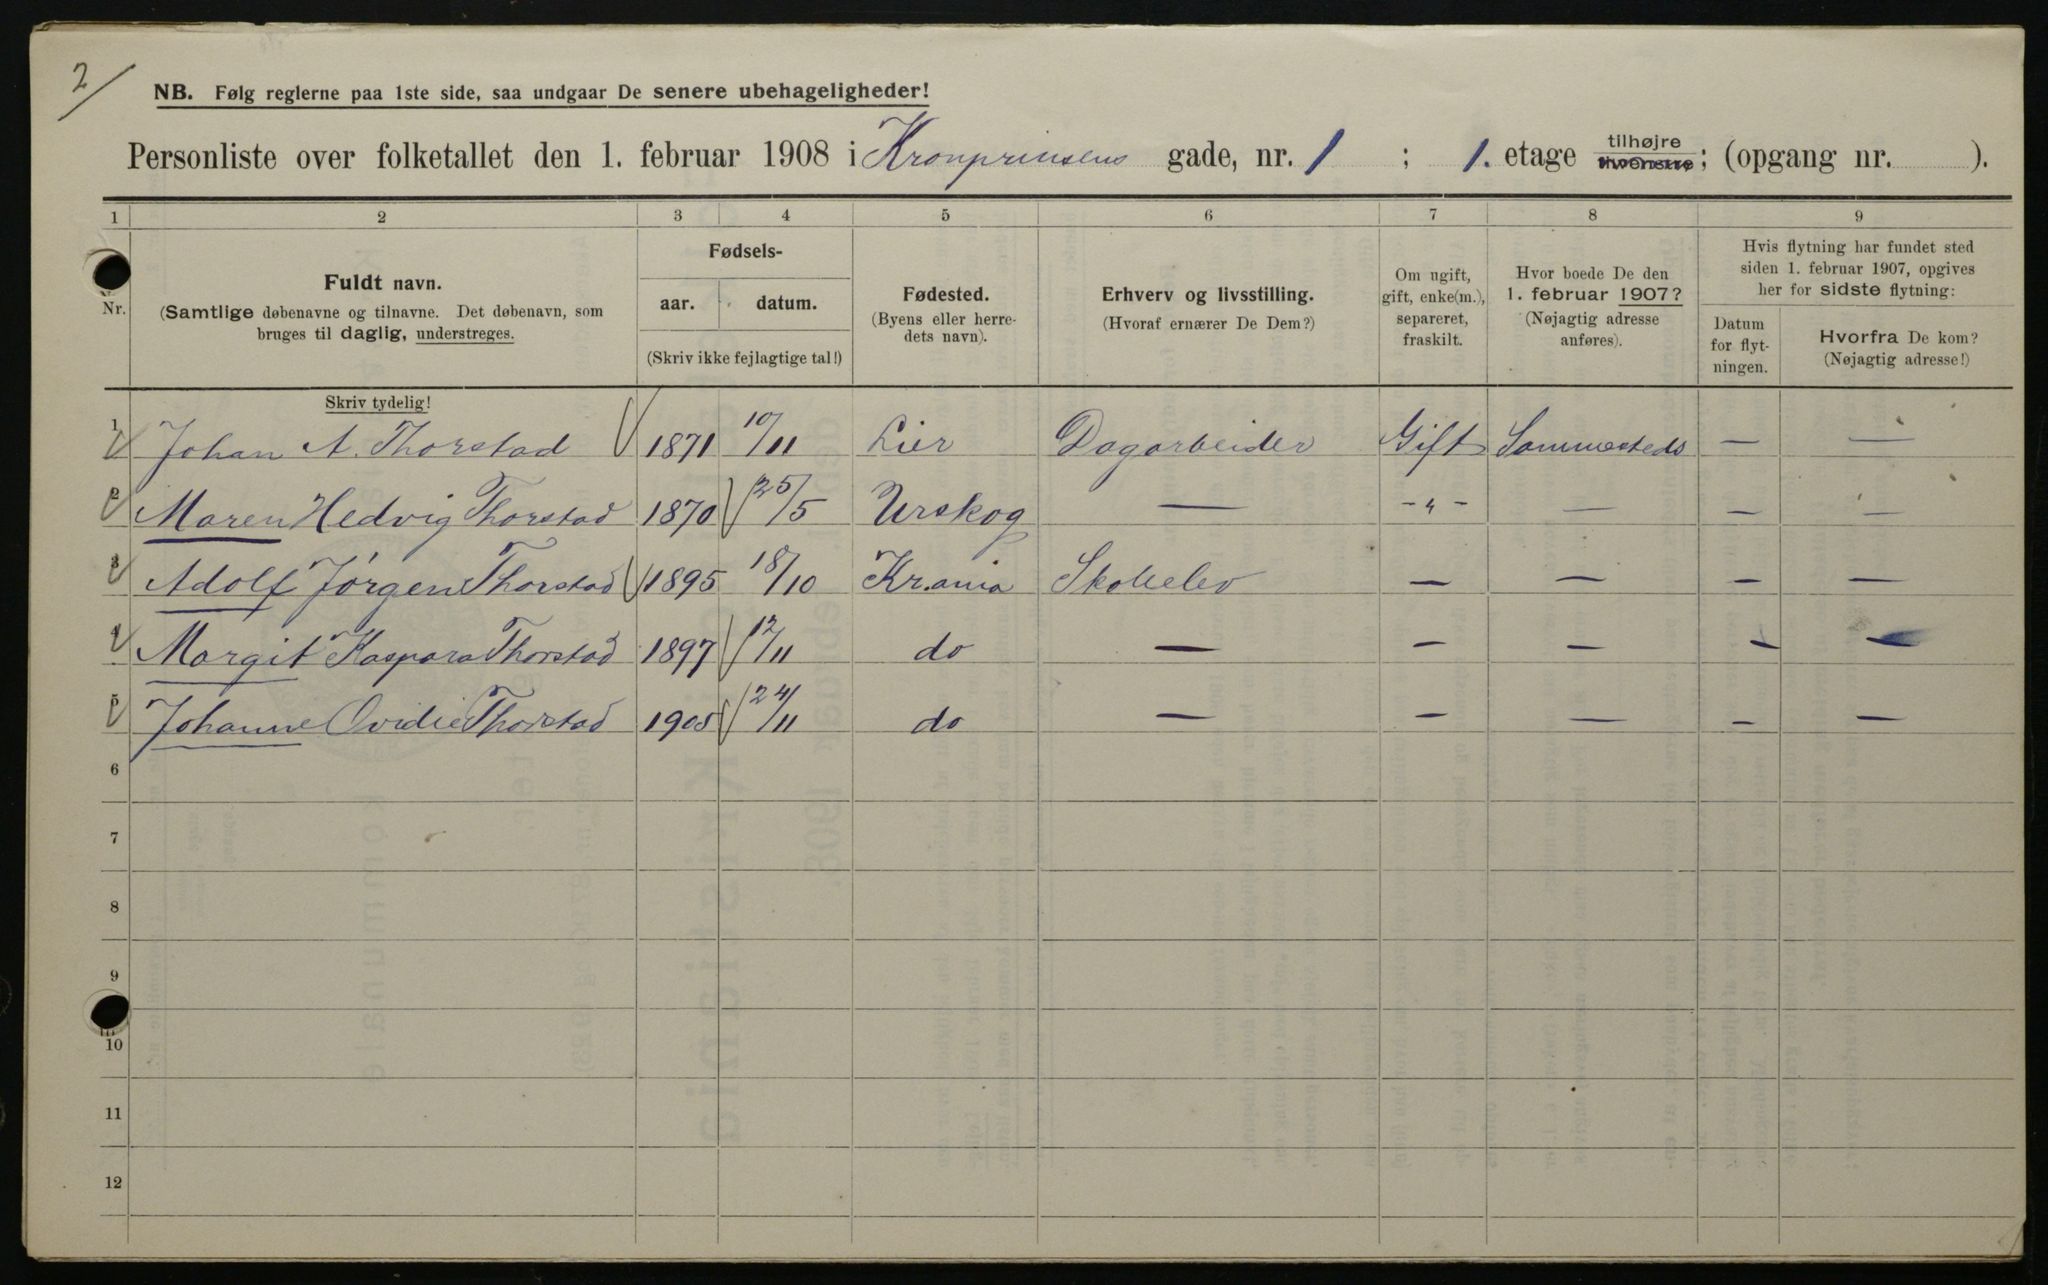 2/
NB. Følg reglerne paa 1ste side, saa undgaar De senere ubehageligheder!
Personliste over folketallet den 1. februar 1908 i Kronprinsens gade, nr. 1 ; 1. etage tilhøjre tilvenstre; (opgang nr. ).
1 2 3 4 5 6 7 8 9
Nr.
Fuldt navn.
(Samtlige døbenavne og tilnavne. Det døbenavn, som
bruges til daglig, understreges.
Fødsels-
aar. datum.
(Skriv ikke fejlagtige tal!)
Fødested.
(Byens eller herre-
dets navn).
Erhverv og livsstilling.
(Hvoraf ernærer De Dem?)
Om ugift,
gift, enke(m.),
separeret,
fraskilt.
Hvor boede De den
1. februar 1907?
(Nøjagtig adresse
anføres).
Hvis flytning har fundet sted
siden 1. februar 1907, opgives
her for sidste flytning:
Datum
for flyt-
ningen.
Hvorfra De kom?
(Nøjagtig adresse!)
Skriv tydelig!
1 Johan A. Thorstad 1871 10/11 Lier Dagarbeider Gift Sammesteds — —
2 Maren Hedvig Thorstad 1870 25/5 Urskog — -"- — — —
3 Adolf Jørgen Thorstad 1895 18/10 Kr.ania Skoleelev — — — —
4 Margit Kaspara Thorstad 1897 12/11 do — — — — —
5 Johanne Ovidie Thorstad 1905 24/11 do — — — — —
6
7
8
9
10
11
12